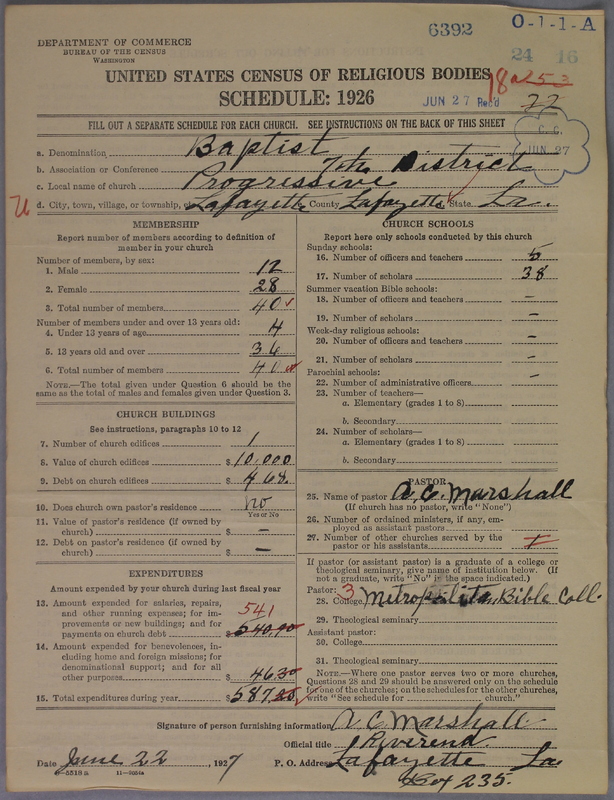 6392
O-1-1-A
24 16
DEPARTMENT OF COMMERCE
BUREAU OF THE CENSUS
WASHINGTON
UNITED STATES CENSUS OF RELIGIOUS BODIES
SCHEDULE: 1926
JUN 27 Rec'd
22
FILL OUT A SEPARATE SCHEDULE FOR EACH CHURCH. SEE INSTRUCTIONS ON THE BACK OF THIS SHEET
C. C.
JUN 27
a. Denomination Baptist
b. Association or Conference 7th District
c. Local name of church Progressive
d. City, town, village, or township, etc. Lafayette County Lafayette State La.
MEMBERSHIP
Report number of members according to definition of
member in your church
Number of members, by sex:
1. Male 12
2. Female 28
3. Total number of members 40
Number of members under and over 13 years old:
4. Under 13 years of age 4
5. 13 years old and over 36
6. Total number of members 40
NOTE.—The total given under Question 6 should be the
same as the total of males and females given under Question 3.
CHURCH BUILDINGS
See instructions, paragraphs 10 to 12
7. Number of church edifices 1
8. Value of church edifices $ 10,000
9. Debt on church edifices $ 468.
10. Does church own pastor's residence? no
Yes or No
11. Value of pastor's residence (if owned by
church) $ —
12. Debt on pastor's residence (if owned by
church) $ —
EXPENDITURES
Amount expended by your church during last fiscal year
13. Amount expended for salaries, repairs,
and other running expenses; for im-
provements or new buildings; and for
payments on church debt $ 540.90
541
14. Amount expended for benevolences, in-
cluding home and foreign missions; for
denominational support; and for all
other purposes $ 46.30
15. Total expenditures during year $ 587.20
CHURCH SCHOOLS
Report here only schools conducted by this church
Sunday schools:
16. Number of officers and teachers 5
17. Number of scholars 38
Summer vacation Bible schools:
18. Number of officers and teachers —
19. Number of scholars —
Week-day religious schools:
20. Number of officers and teachers —
21. Number of scholars —
Parochial schools:
22. Number of administrative officers —
23. Number of teachers—
a. Elementary (grades 1 to 8)
b. Secondary
24. Number of scholars—
a. Elementary (grades 1 to 8)
b. Secondary
PASTOR
25. Name of pastor A. C. Marshall
(If church has no pastor, write "None")
26. Number of ordained ministers, if any, em-
ployed as assistant pastors
27. Number of other churches served by the
pastor or his assistants
If pastor (or assistant pastor) is a graduate of a college or
theological seminary, give name of institution below. (If
not a graduate, write "No" in the space indicated.)
Pastor: 3
28. College Metropolitan Bible Coll.
29. Theological seminary
Assistant pastor:
30. College
31. Theological seminary
NOTE.—Where one pastor serves two or more churches,
Questions 28 and 29 should be answered only on the schedule
for one of the churches; on the schedules for the other churches,
write "See schedule for church."
Signature of person furnishing information A C Marshall
Official title Reverend
Date June 22, 1927 P. O. Address Lafayette La
Box 235.